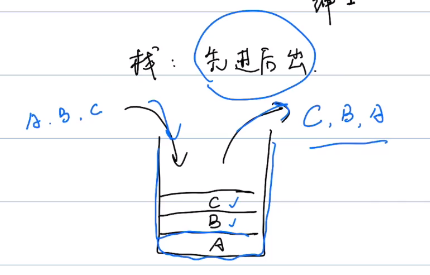 栈：先进后出.
A、B、C
C、B、A
C
B
A